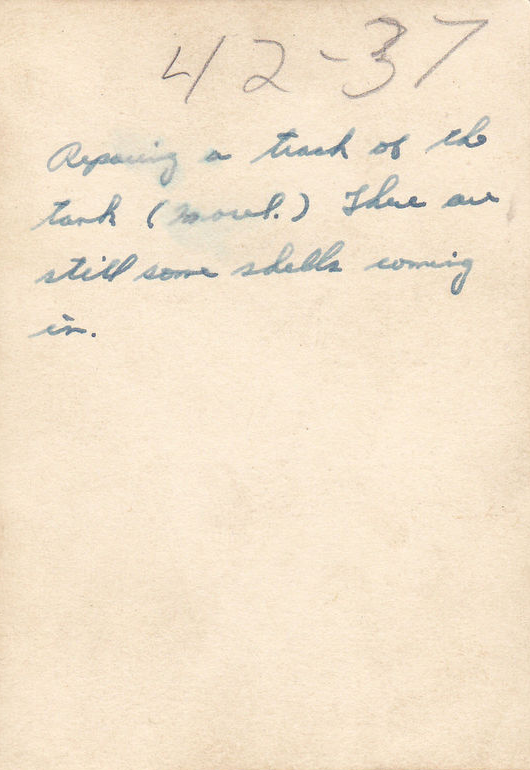 42-37
Repairing a track of the
tank ( ) There are
still some shells coming
in.